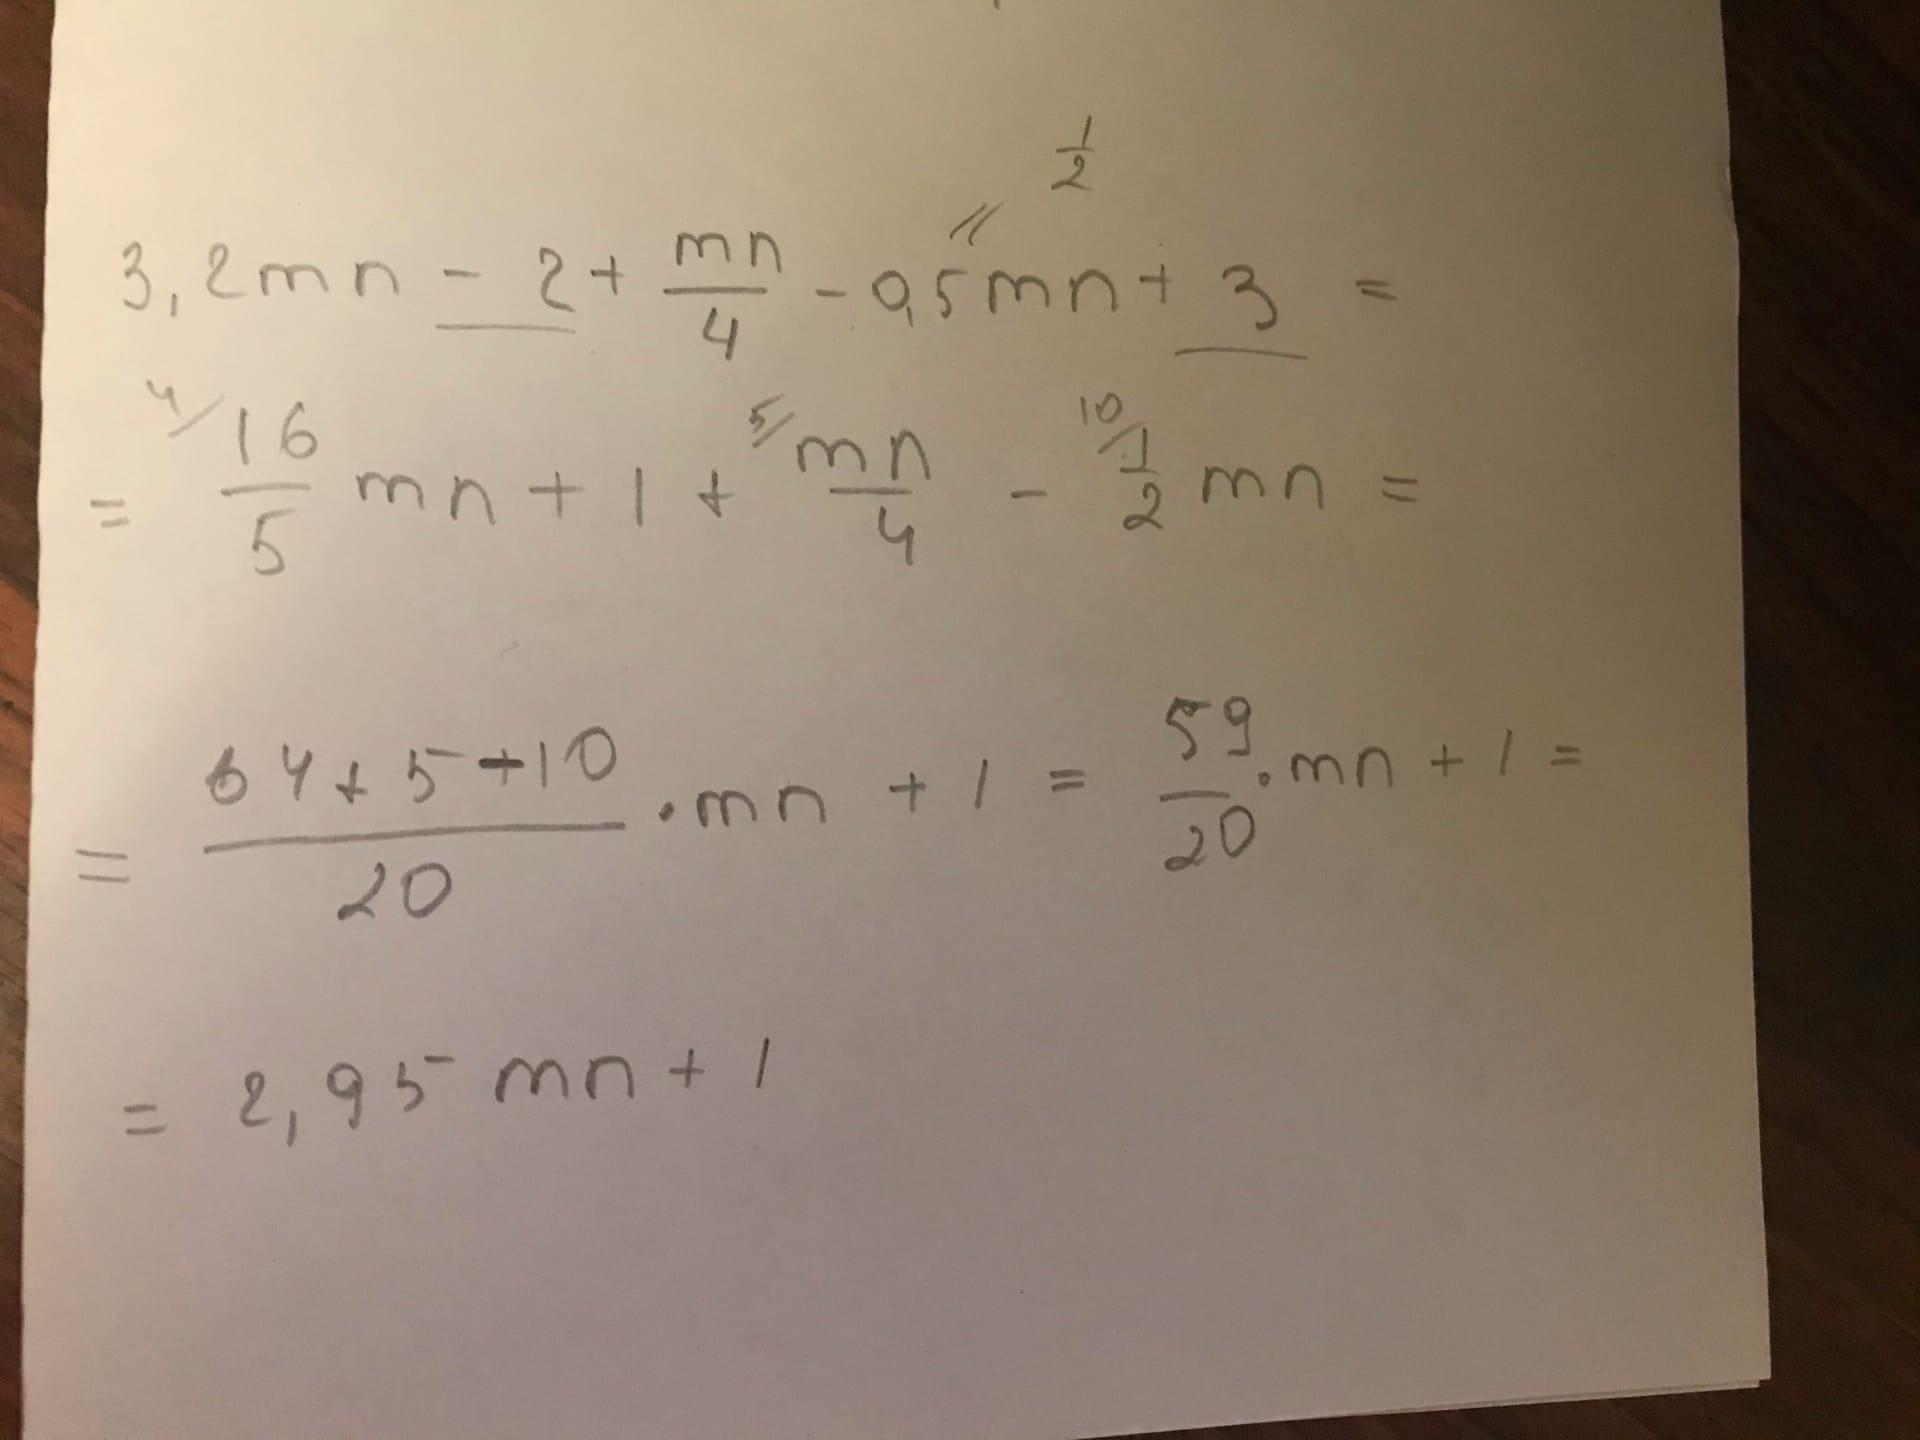 1/2
//
3,2mn - 2 + mn/4 - 0,5mn + 3 =
= 4/ 16/5 mn + 1 + 5/ mn/4 - 10/ 1/2 mn =
= 64+5+10/20 · mn + 1 = 59/20 · mn + 1 =
= 2,95 mn + 1